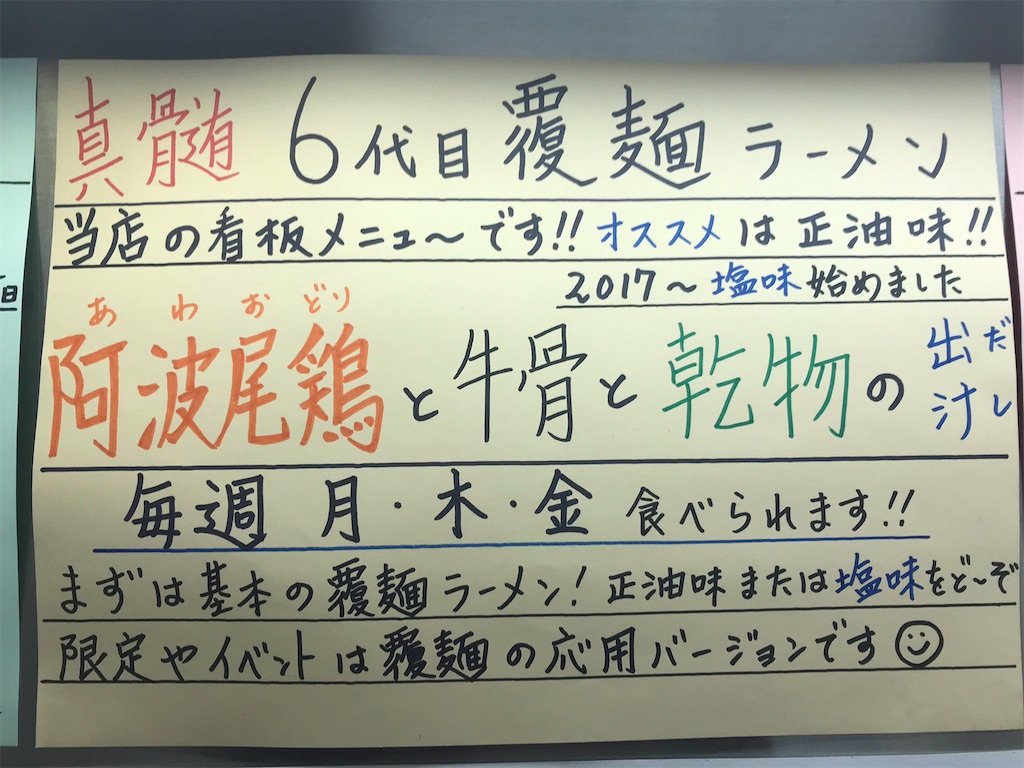 真髄 6代目覆麺ラーメン
当店の看板メニュー〜です!! オススメは正油味!!
2017〜塩味始めました
あわおどり
阿波尾鶏と牛骨と乾物の出汁
だし
毎週 月・木・金 食べられます!!
まずは基本の覆麺ラーメン! 正油味または塩味をど〜ぞ
限定やイベントは覆麺の応用バージョンです☺